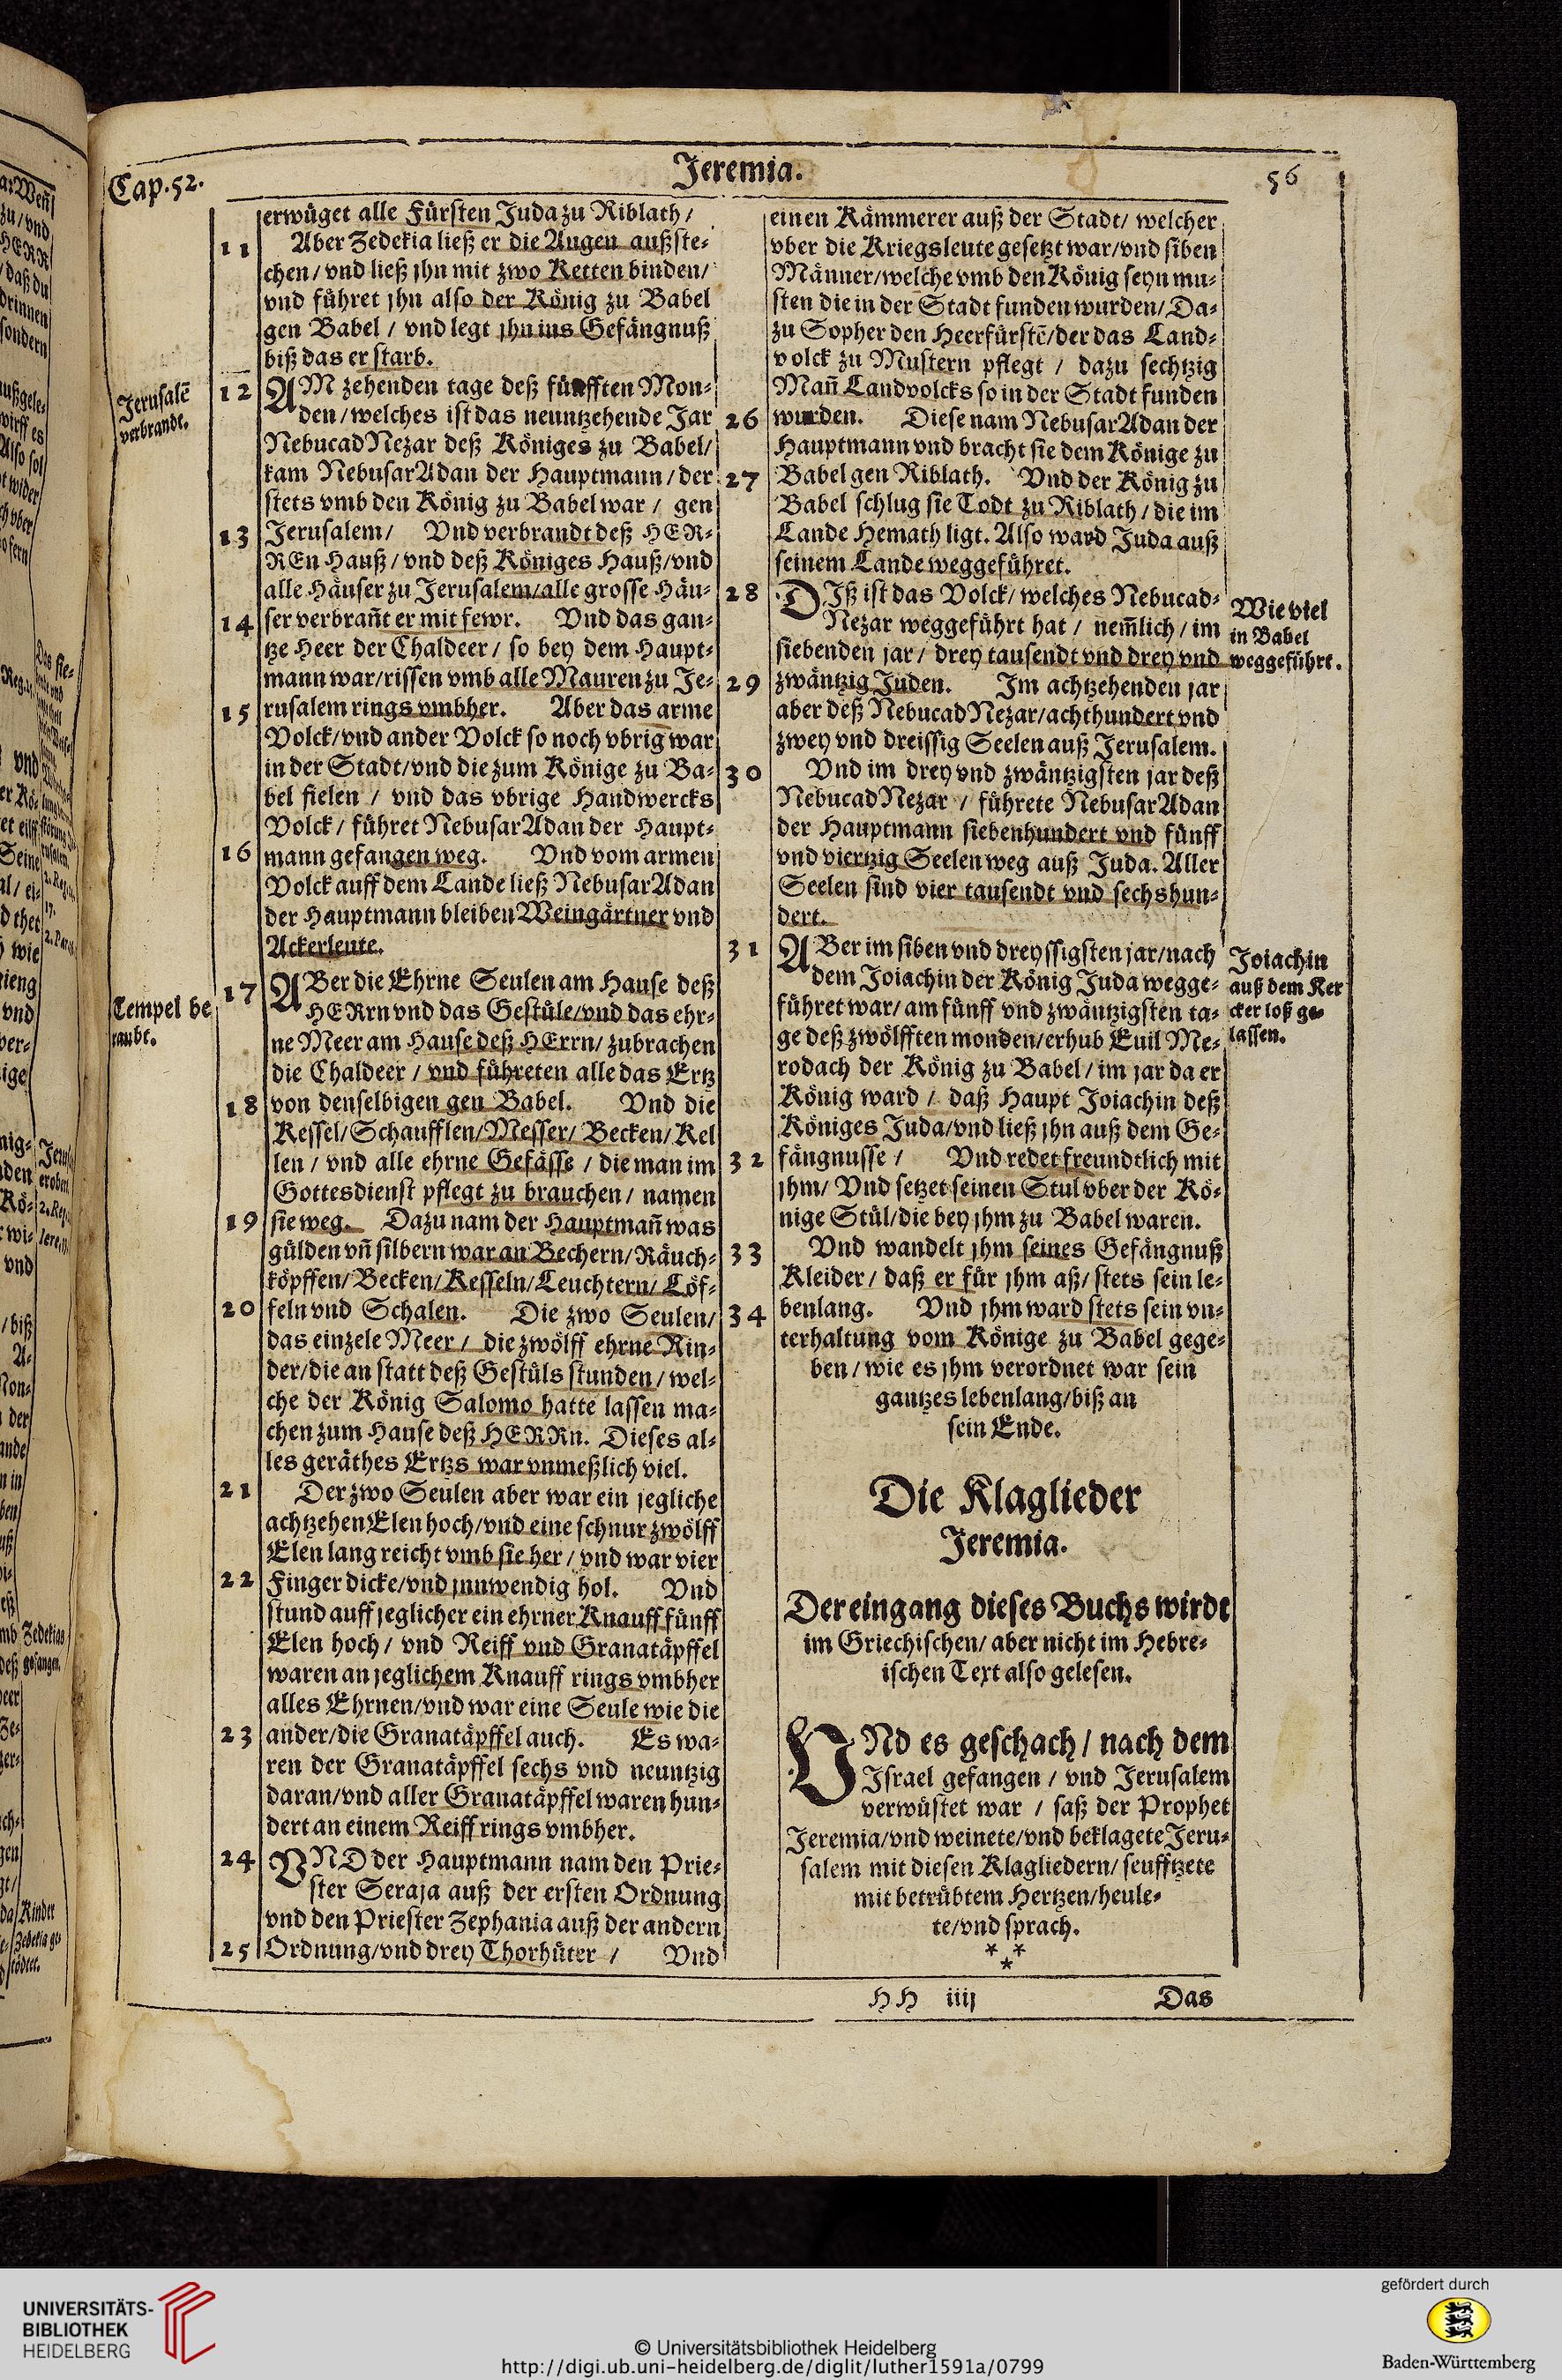 Cap.52.
Jeremia.
56
erwüget alle Fürsten Juda zu Riblath/
11 Aber Zedekia ließ er die Augen außste-
chen/ vnd ließ jhn mit zwo Ketten binden/
vnd führet jhn also der König zu Babel
gen Babel / vnd legt jhn ins Gefängnuß
biß das er starb.
Jerusalē
verbrandt.
12 AM zehenden tage deß fünfften Mon-
den/welches ist das neuntzehende Jar
NebucadNezar deß Königes zu Babel/
kam NebusarAdan der Hauptmann/der
stets vmb den König zu Babel war / gen
13 Jerusalem/ Vnd verbrandt deß HER-
REn Hauß/ vnd deß Königes Hauß/vnd
alle Häuser zu Jerusalem/alle grosse Häu-
14 ser verbrañt er mit fewr. Vnd das gan-
tze Heer der Chaldeer/ so bey dem Haupt-
mann war/rissen vmb alle Mauren zu Je-
15 rusalem rings vmbher. Aber das arme
Volck/vnd ander Volck so noch vbrig war
in der Stadt/vnd die zum Könige zu Ba-
bel fielen / vnd das vbrige Handwercks
Volck/ führet NebusarAdan der Haupt-
16 mann gefangen weg. Vnd vom armen
Volck auff dem Lande ließ NebusarAdan
der Hauptmann bleiben Weingärtner vnd
Ackerleute.
Tempel be
raubt.
17 ABer die Ehrne Seulen am Hause deß
HERrn vnd das Gestüle/vnd das ehr-
ne Meer am Hause deß HErrn/ zubrachen
die Chaldeer / vnd führeten alle das Ertz
18 von denselbigen gen Babel. Vnd die
Kessel/Schaufflen/Messer/ Becken/Kel
len / vnd alle ehrne Gefässe / die man im
Gottesdienst pflegt zu brauchen/ namen
19 sie weg. Dazu nam der Hauptmañ was
gülden vñ silbern war an Bechern/Räuch-
köpffen/Becken/Kesseln/Leuchtern/ Löf-
20 feln vnd Schalen. Die zwo Seulen/
das einzele Meer / die zwölff ehrne Rin-
der/die an statt deß Gestüls stunden/ wel-
che der König Salomo hatte lassen ma-
chen zum Hause deß HERRn. Dieses al-
les geräthes Ertzs war vnmeßlich viel.
21 Der zwo Seulen aber war ein jegliche
achtzehen Elen hoch/vnd eine schnur zwölff
Elen lang reicht vmb sie her/ vnd war vier
22 Finger dicke/vnd jnnwendig hol. Vnd
stund auff jeglicher ein ehrner Knauff fünff
Elen hoch/ vnd Reiff vnd Granatäpffel
waren an jeglichem Knauff rings vmbher
alles Ehrnen/vnd war eine Seule wie die
23 ander/die Granatäpffel auch. Es wa-
ren der Granatäpffel sechs vnd neuntzig
daran/vnd aller Granatäpffel waren hun-
dert an einem Reiff rings vmbher.
24 VND der Hauptmann nam den Prie-
ster Seraja auß der ersten Ordnung
vnd den Priester Zephania auß der andern
25 Ordnung/vnd drey Thorhüter / Vnd
einen Kämmerer auß der Stadt/ welcher
vber die Kriegsleute gesetzt war/vnd siben
Männer/welche vmb den König seyn mu-
sten die in der Stadt funden wurden/Da-
zu Sopher den Heerfürstē/der das Land-
volck zu Mustern pflegt / dazu sechtzig
Mañ Landvolcks so in der Stadt funden
26 wurden. Diese nam NebusarAdan der
Hauptmann vnd bracht sie dem Könige zu
27 Babel gen Riblath. Vnd der König zu
Babel schlug sie Todt zu Riblath/ die im
Lande Hemath ligt. Also ward Juda auß
seinem Lande weggeführet.
28 DIß ist das Volck/ welches Nebucad-
Nezar weggeführt hat / nem̃lich/ im
siebenden jar/ drey tausendt vnd drey vnd
Wie viel
in Babel
weggeführt.
29 zwäntzig Juden. Im achtzehenden jar
aber deß NebucadNezar/achthundert vnd
zwey vnd dreissig Seelen auß Jerusalem.
30 Vnd im drey vnd zwäntzigsten jar deß
NebucadNezar / führete NebusarAdan
der Hauptmann siebenhundert vnd fünff
vnd viertzig Seelen weg auß Juda. Aller
Seelen sind vier tausendt vnd sechshun-
dert.
31 ABer im siben vnd dreyssigsten jar/nach
dem Joiachin der König Juda wegge-
führet war/ am fünff vnd zwäntzigsten ta-
ge deß zwölfften monden/erhub Euil Me-
rodach der König zu Babel/ im jar da er
König ward / daß Haupt Joiachin deß
Königes Juda/vnd ließ jhn auß dem Ge-
Joiachin
auß dem Ker
cker loß ge-
lassen.
32 fängnusse / Vnd redet freundtlich mit
jhm/ Vnd setzet seinen Stul vber der Kö-
nige Stül/die bey jhm zu Babel waren.
33 Vnd wandelt jhm seines Gefängnuß
Kleider/ daß er für jhm aß/ stets sein le-
34 benlang. Vnd jhm ward stets sein vn-
terhaltung vom Könige zu Babel gege-
ben/ wie es jhm verordnet war sein
gantzes lebenlang/biß an
sein Ende.
Die Klaglieder
Jeremia.
Der eingang dieses Buchs wirdt
im Griechischen/ aber nicht im Hebre-
ischen Text also gelesen.
VNd es geschach/ nach dem
Israel gefangen / vnd Jerusalem
verwüstet war / saß der Prophet
Jeremia/vnd weinete/vnd beklagete Jeru-
salem mit diesen Klagliedern/ seufftzete
mit betrübtem Hertzen/heule-
te/vnd sprach.
***
HH iiij
Das
UNIVERSITÄTS-
BIBLIOTHEK
HEIDELBERG
© Universitätsbibliothek Heidelberg
http://digi.ub.uni-heidelberg.de/diglit/luther1591a/0799
gefördert durch
Baden-Württemberg